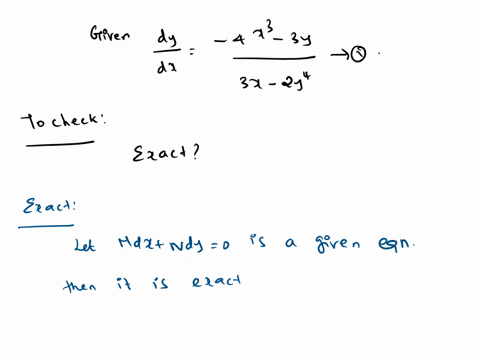 Given dy/dx = (-4x³ - 3y)/(3x - 2y⁴) → ①.
To check:
Exact?
Exact:
Let Mdx + Ndy = 0 is a given eqn.
then it is exact